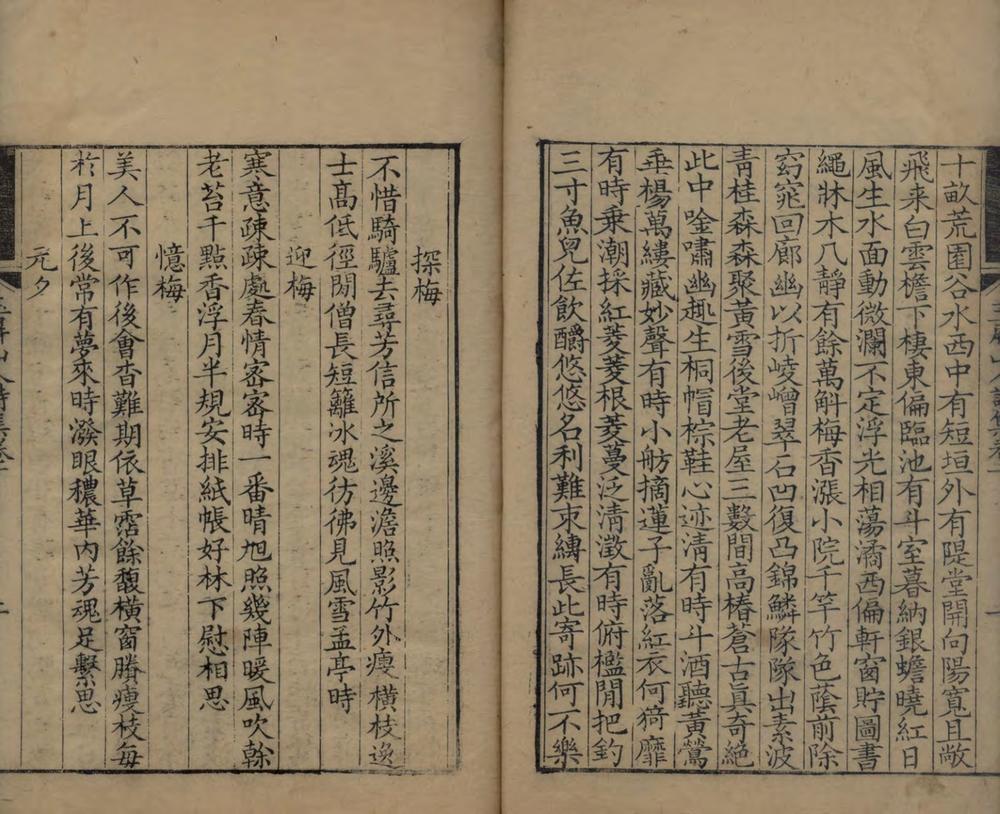 十畝荒園谷水西中有短垣外有隄堂開向陽寬且敞
飛来白雲檐下棲東偏臨池有斗室暮納銀蟾曉紅日
風生水面動微瀾不定浮光相蕩潏西偏軒窗貯圖書
繩牀木几靜有餘萬斛梅香漲小院千竿竹色蔭前除
窈窕回廊幽以折崚嶒翠石凹復凸錦鱗隊隊出素波
青桂森森聚黃雪後堂老屋三數間高椿蒼古真奇絕
此中唫嘯幽趣生桐帽棕鞋心迹清有時斗酒聽黃鶯
垂楊萬縷藏妙聲有時小舫摘蓮子亂落紅衣何猗靡
有時乗潮採紅菱菱根菱蔓泛清澂有時俯檻閒把釣
三寸魚兒佐飲釂悠悠名利難束縛長此寄跡何不樂
探梅
不惜騎驢去尋芳信所之溪邊澹照影竹外瘦橫枝逸
士高低徑閒僧長短籬冰魂彷彿見風雪孟亭時
迎梅
寒意疎疎處春情宻宻時一番晴旭照幾陣暖風吹榦
老苔千點香浮月半規安排紙帳好林下慰相思
憶梅
美人不可作後會杳難期依草霑餘馥橫窗賸瘦枝每
於月上後常有夢來時潑眼穠華內芳魂足繫思
元夕